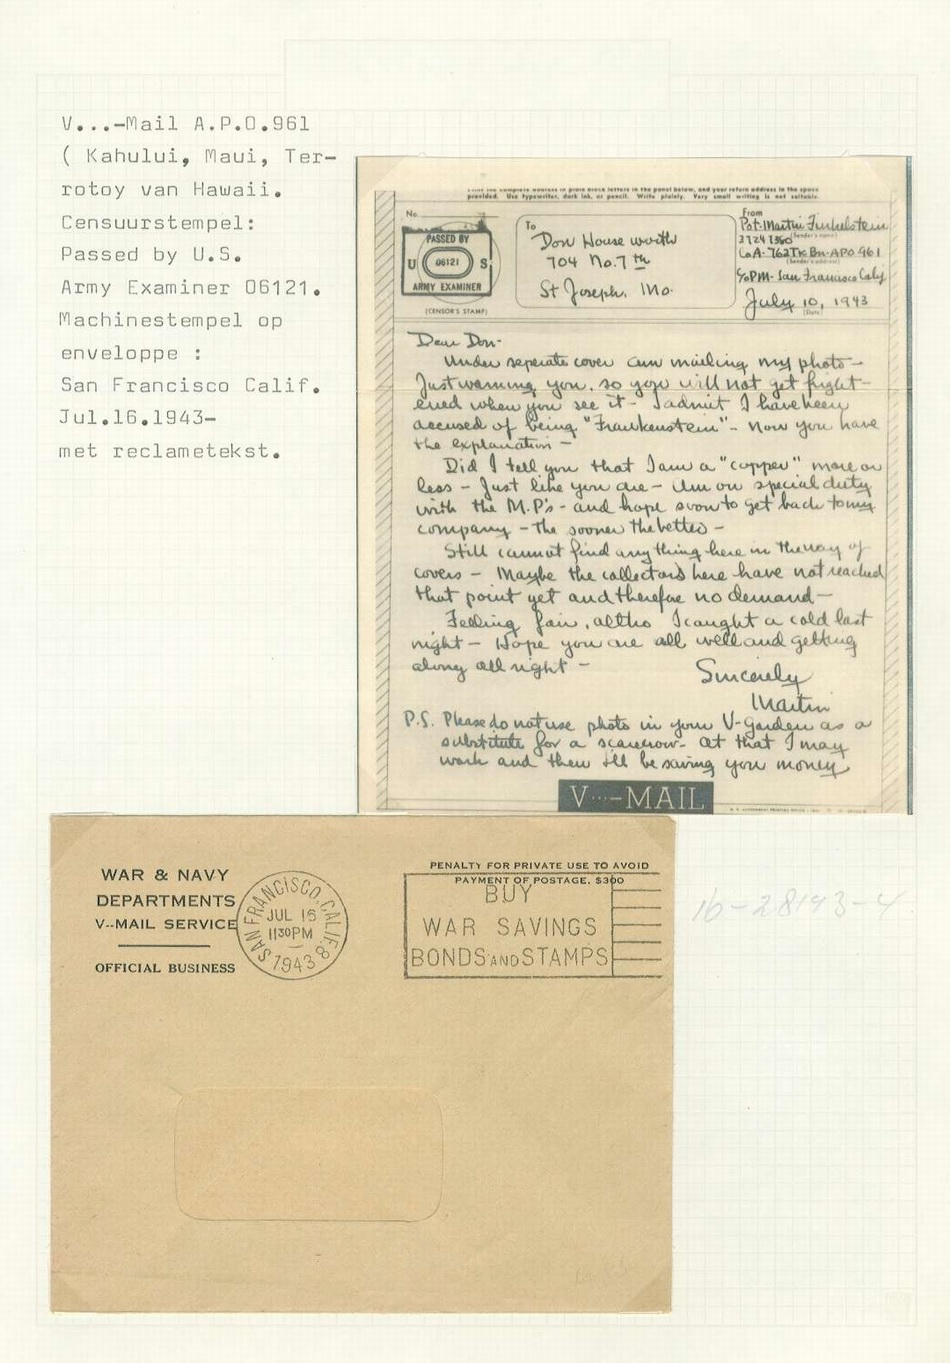 V...-Mail A.P.O.961
( Kahului, Maui, Ter-
rotoy van Hawaii.
Censuurstempel:
Passed by U.S.
Army Examiner 06121.
Machinestempel op
enveloppe :
San Francisco Calif.
Jul.16.1943-
met reclametekst.
Print the complete address in plain block letters in the panel below, and your return address in the space
provided. Use typewriter, dark ink, or pencil. Write plainly. Very small writing is not suitable.
No.
PASSED BY
U 06121 S
ARMY EXAMINER
(CENSOR'S STAMP)
To
Don Houseworth
704 No. 7th
St Joseph, Mo.
From
Pvt. Martin Finkelstein
(Sender's name)
Co A- 762 Tk Bn- APO 961
(Sender's address)
c/o PM- San Francisco Calif
July 10, 1943
(Date)
Dear Don-
Under seperate cover am mailing my photo-
Just warning you, so you will not get fright-
ened when you see it- I admit I have been
accused of being "Frankenstein"- Now you have
the explanation -
Did I tell you that I am a "copper" more or
less - Just like you are - Am on special duty
with the M.P's - and hope soon to get back to my
company - the sooner the better -
Still cannot find anything here in the way of
covers - Maybe the collectors here have not reached
that point yet and therefore no demand -
Feeling fair, altho I caught a cold last
night - Hope you are all well and getting
along all right -
Sincerely
Martin
P.S. Please do not use photo in your V-Garden as a
substitute for a scarecrow- at that I may
work and then I'll be saving you money
V...-MAIL
WAR & NAVY
DEPARTMENTS
V--MAIL SERVICE
OFFICIAL BUSINESS
SAN FRANCISCO, CALIF.
JUL 16
1130PM
1943
PENALTY FOR PRIVATE USE TO AVOID
PAYMENT OF POSTAGE, $300
BUY
WAR SAVINGS
BONDS AND STAMPS
16-28193-4